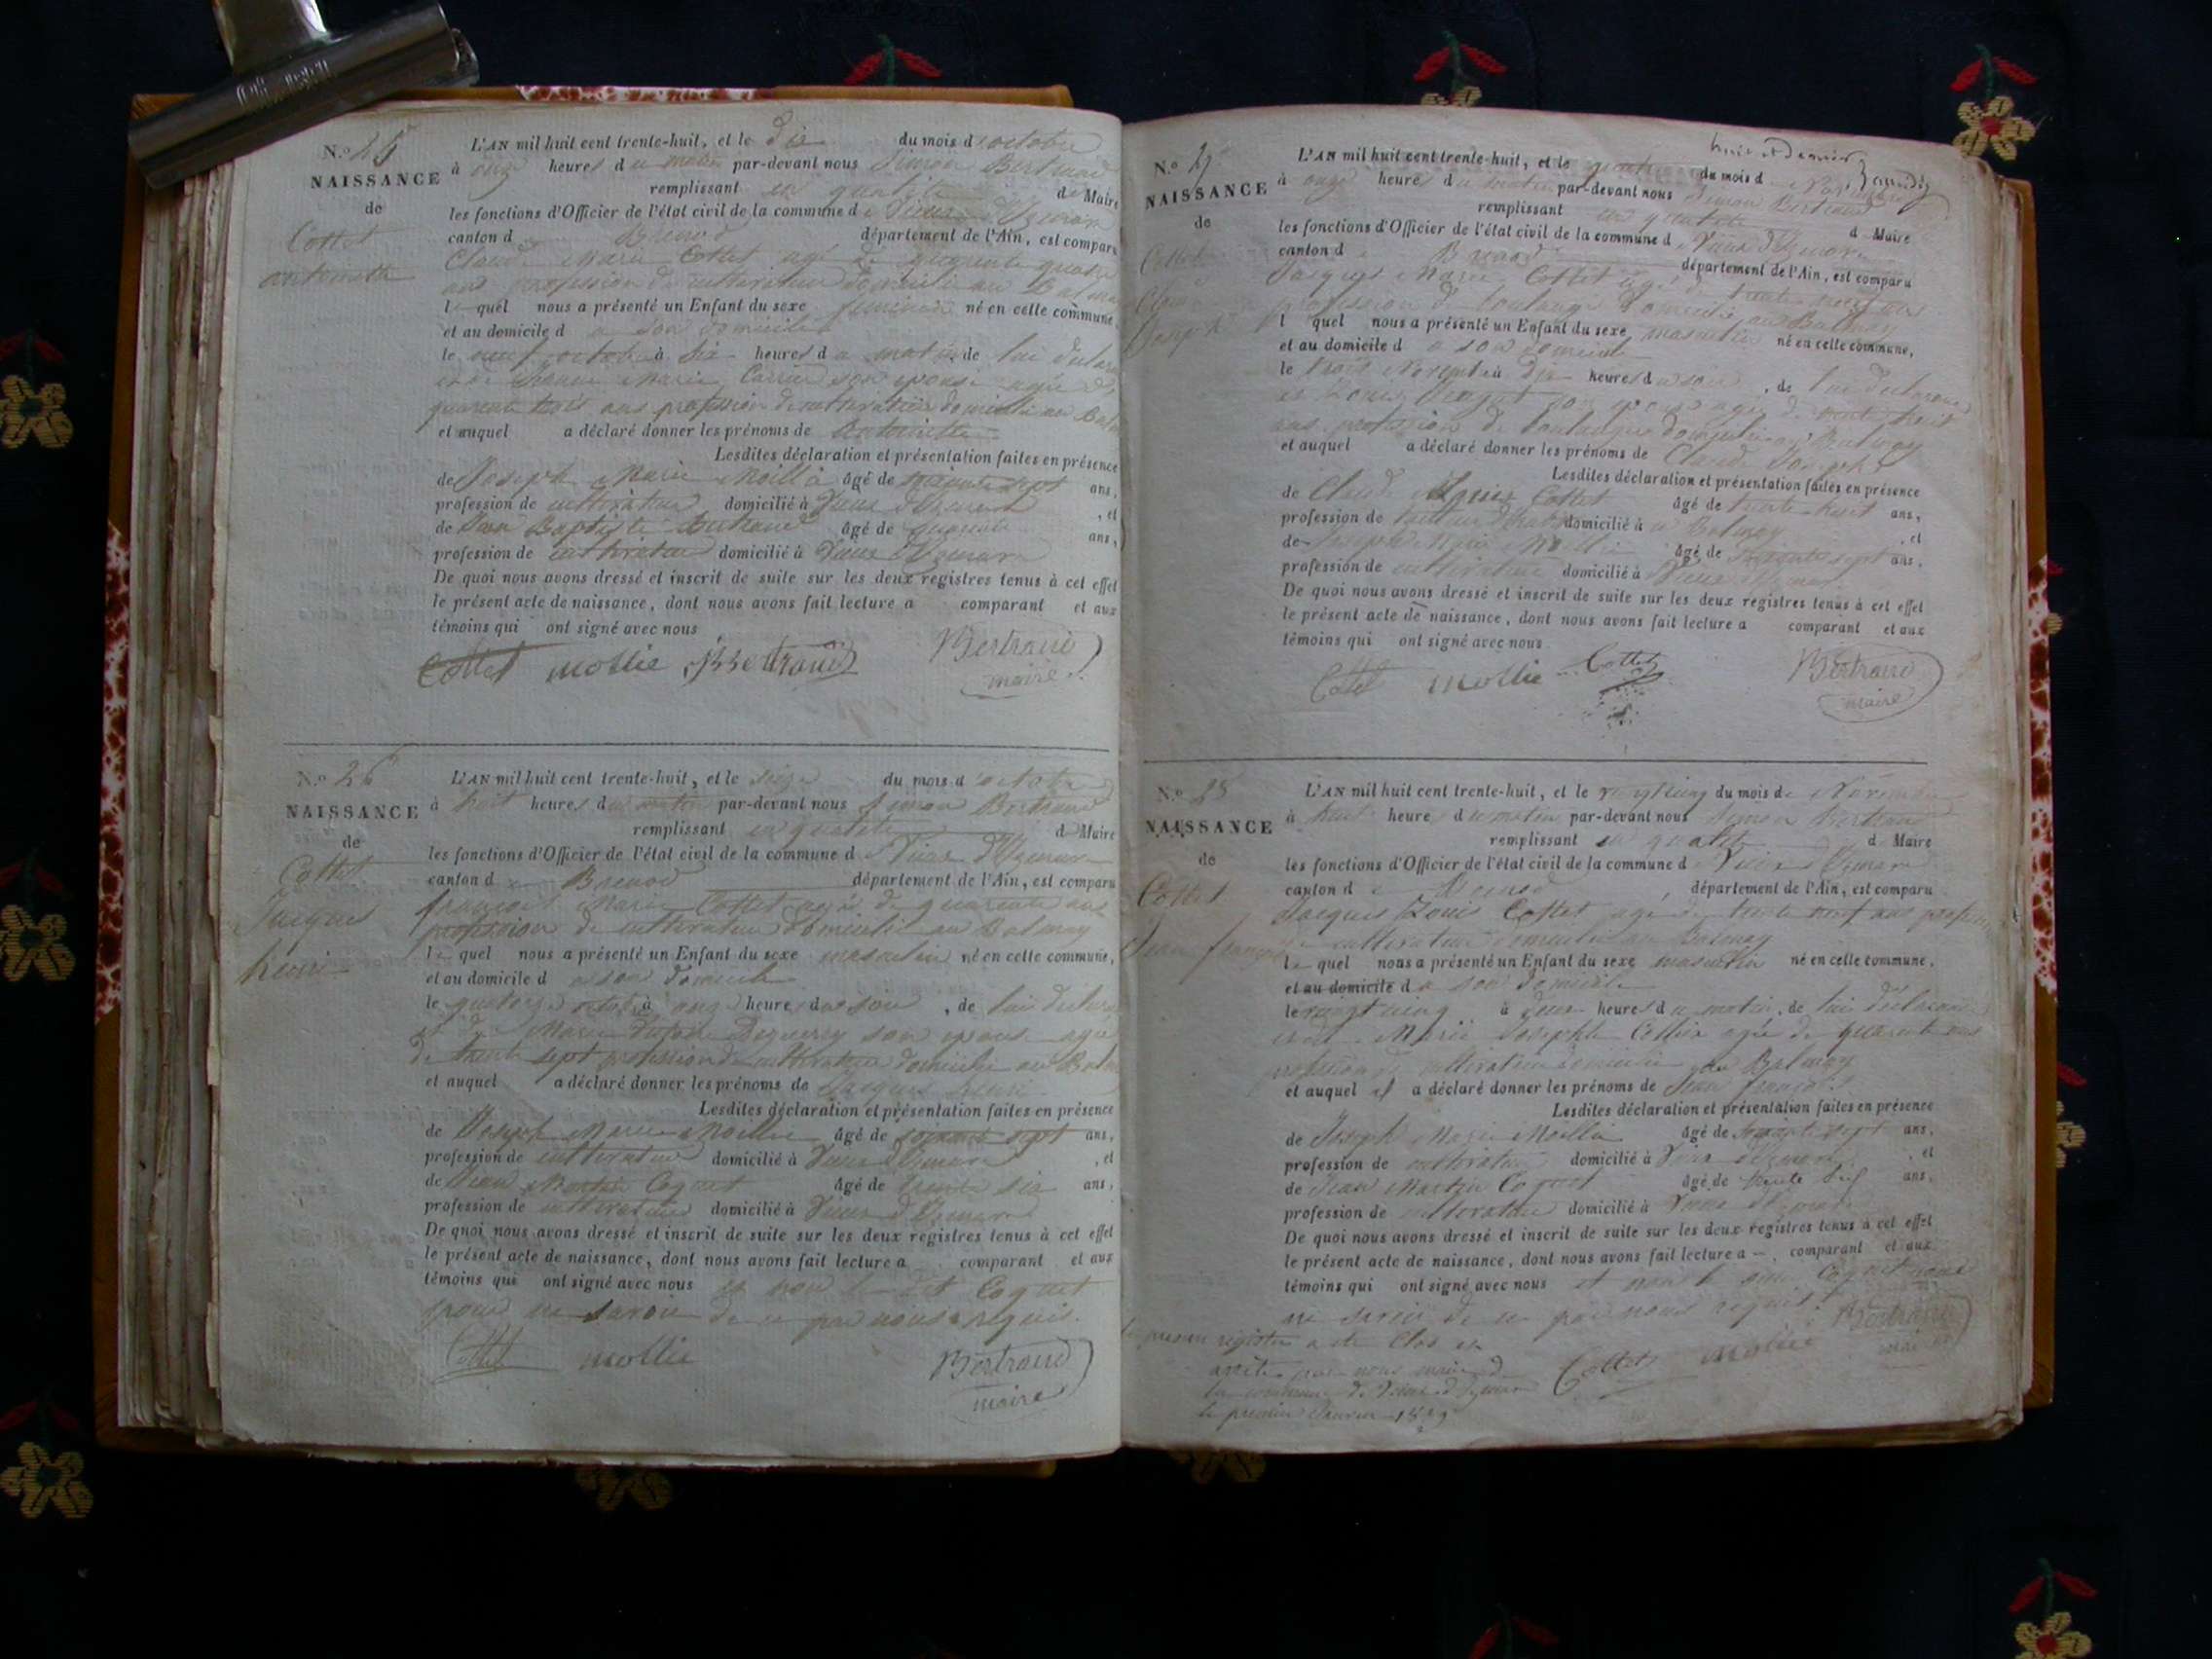 N.º 25
NAISSANCE
de
Cottet
antoinette
L'AN mil huit cent trente-huit, et le dix du mois d'octobre
à onze heures du matin par-devant nous Simon Bertrand
remplissant en qualité de Maire
les fonctions d'Officier de l'état civil de la commune de Vieux d'Izenave
canton de Brenod département de l'Ain, est comparu
Claude Marie Cottet agé de quarente quatre
ans profession de cultivateur domicilié au Balmay
lequel nous a présenté un Enfant du sexe feminin né en cette commune,
et au domicile d a son domicile
le neuf octobre à six heures du matin, de lui déclarant
et de Marie Carrier son épouse agée de
quarente trois ans profession de cultivatrice domicilié au Balmay
et auquel a déclaré donner les prénoms de Antoinette
Lesdites déclaration et présentation faites en présence
de Joseph Marie Mollie âgé de soixante sept ans,
profession de cultivateur domicilié à Vieux d'Izenave , et
de Jean Baptiste Bertrand âgé de quarente ans,
profession de cultivateur domicilié à Vieux d'Izenave
De quoi nous avons dressé et inscrit de suite sur les deux registres tenus à cet effet
le présent acte de naissance, dont nous avons fait lecture a comparant et aux
témoins qui ont signé avec nous
Cottet mollie JBBertrand Bertrand
maire
N.º 26
NAISSANCE
de
Cottet
Jacques
henri
L'AN mil huit cent trente-huit, et le seize du mois d'octobre
à huit heures du matin par-devant nous Simon Bertrand
remplissant en qualité de Maire
les fonctions d'Officier de l'état civil de la commune de Vieux d'Izenave
canton de Brenod département de l'Ain, est comparu
françois Marie Cottet agé de quarente ans
profession de cultivateur domicilié au Balmay
lequel nous a présenté un Enfant du sexe masculin né en cette commune,
et au domicile d a son domicile
le quatorze octobre à onze heures du soir , de lui déclarant
et de Marie son épouse agée
de trente sept profession de cultivatrice domicilié au Balmay
et auquel a déclaré donner les prénoms de Jacques henri
Lesdites déclaration et présentation faites en présence
de Joseph Marie Mollie âgé de soixante sept ans,
profession de cultivateur domicilié à Vieux d'Izenave , et
de Jean Martin Coquet âgé de trente six ans,
profession de cultivateur domicilié à Vieux d'Izenave
De quoi nous avons dressé et inscrit de suite sur les deux registres tenus à cet effet
le présent acte de naissance, dont nous avons fait lecture a comparant et aux
témoins qui ont signé avec nous et non le dit Coquet
pour ne savoir de ce par nous requis.
Cottet mollie Bertrand
maire
huit et dernier
N.º 27
NAISSANCE
de
Cottet
Claude
Joseph
L'AN mil huit cent trente-huit, et le quatre du mois de Novembre
à onze heures du matin par-devant nous Simon Bertrand
remplissant en qualité d Maire
les fonctions d'Officier de l'état civil de la commune de Vieux d'Izenave
canton de Brenod département de l'Ain, est comparu
Jacques Marie Cottet agé de trente neuf ans
profession de boulanger domicilié au Balmay
l quel nous a présenté un Enfant du sexe masculin né en cette commune,
et au domicile d a son domicile
le trois Novembre à dix heures du soir , de lui déclarant
et Louise son épouse agée de trente huit
ans profession de boulangère domicilié au Balmay
et auquel a déclaré donner les prénoms de Claude Joseph
Lesdites déclaration et présentation faites en présence
de Claude Cottet âgé de trente huit ans,
profession de tailleur d'habits domicilié à Balmay , et
de Joseph Marie Mollie âgé de soixante sept ans.
profession de cultivateur domicilié à Vieux d'Izenave
De quoi nous avons dressé et inscrit de suite sur les deux registres tenus à cet effet
le présent acte de naissance, dont nous avons fait lecture a comparant et aux
témoins qui ont signé avec nous
Cottet mollie Cottet Bertrand
maire
N.º 28
NAISSANCE
de
Cottet
Jean françois
L'AN mil huit cent trente-huit, et le vingt cinq du mois de Novembre
à huit heures du matin par-devant nous Simon Bertrand
remplissant en qualité d Maire
les fonctions d'Officier de l'état civil de la commune de Vieux d'Izenave
canton de Brenod , département de l'Ain, est comparu
Jacques Louis Cottet agé de trente neuf ans profession
de cultivateur domicilié au Balmay
lequel nous a présenté un Enfant du sexe masculin né en cette commune,
et au domicile d a son domicile
le vingt cinq à deux heures du matin, de lui déclarant
et de Marie Josephte agée de quarente ans
profession de cultivatrice domicilié au Balmay
et auquel il a déclaré donner les prénoms de Jean françois
Lesdites déclaration et présentation faites en présence
de Joseph Marie Mollie âgé de soixante sept ans,
profession de cultivateur domicilié à Vieux d'Izenave , et
de Jean Martin Coquet âgé de trente six ans,
profession de cultivateur domicilié à Vieux d'Izenave
De quoi nous avons dressé et inscrit de suite sur les deux registres tenus à cet effet
le présent acte de naissance, dont nous avons fait lecture a comparant et aux
témoins qui ont signé avec nous et non le sieur Coquet pour
ne savoir de ce par nous requis. Bertrand
maire
Cottet mollie
le present registre a été Clos et
arrêté par nous maire de
la commune de Vieux d'Izenave
le premier Janvier 1839